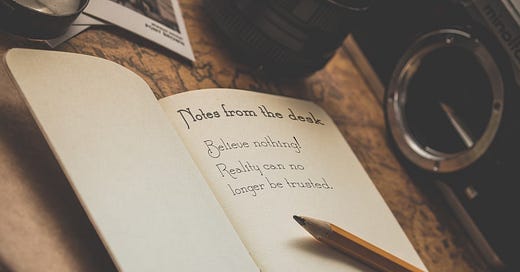 Notes from the desk
Believe nothing!
Reality can no
longer be trusted.
minolta